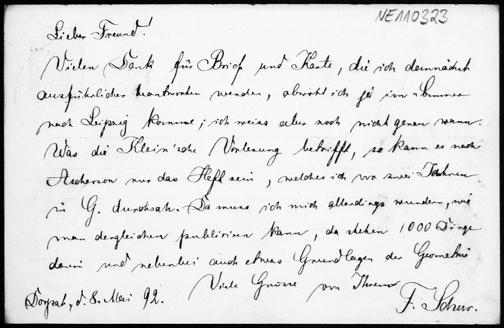 NE110323
Lieber Freund!
Vielen Dank für Brief und Karte, die ich demnächst
ausführlicher beantworten werden, obwohl ich ja im Sommer
nach Leipzig komme; ich weiss aber noch nicht genau wann.
Was die Klein'sche Vorlesung betrifft, so kann es nach
Ascherson nur das Heft sein, welches ich vor zwei Jahren
in G. durchsah. Da muss ich mich allerdings wundern, wie
man dergleichen publiciren kann, da stehen 1000 Dinge
darin und nebenbei auch etwas Grundlagen der Geometrie
Viele Grüsse von Ihrem
Dorpat, d. 8. Mai 92. F. Schur.